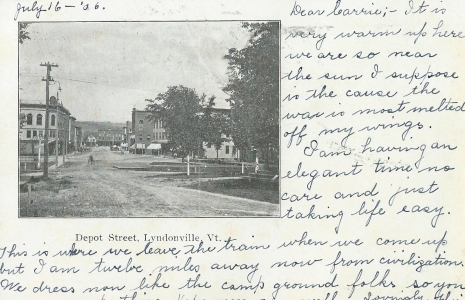 July 16 - '06.
Dear Carrie; - It is
very warm up here
we are so near
the sun I suppose
is the cause the
wax is most melted
off my wings.
I am having an
elegant time, no
care and just
taking life easy.
Depot Street, Lyndonville, Vt.
This is where we leave the train when we come up
but I am twelve miles away now from civilization.
We dress now like the camp ground folks so you